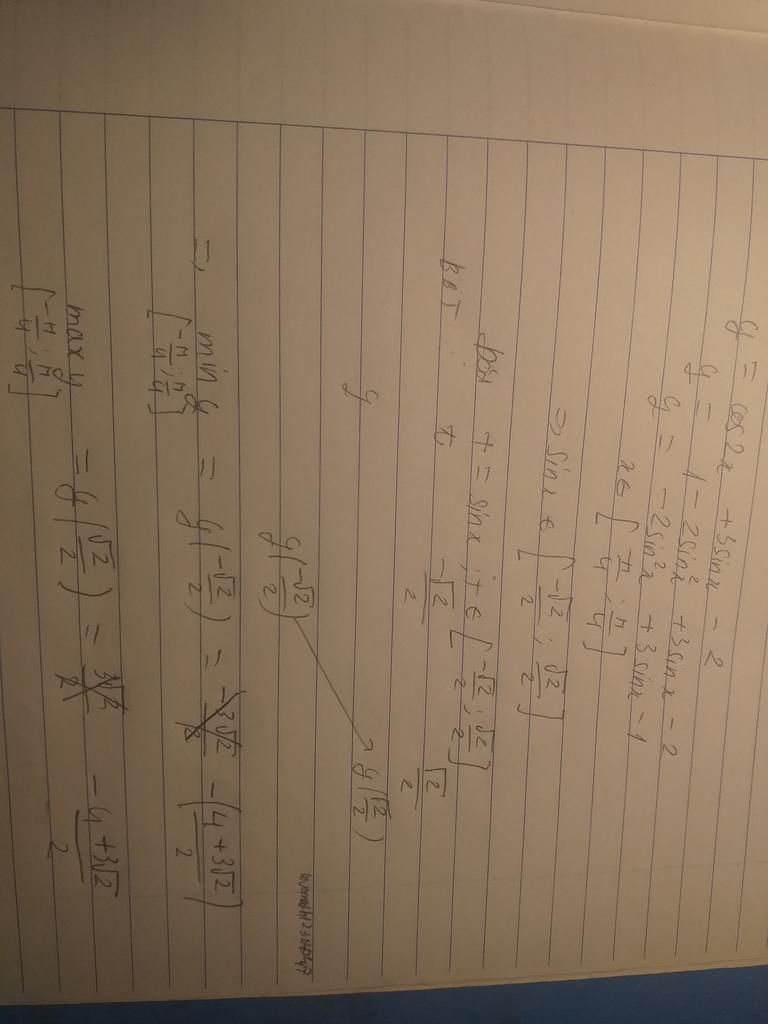 y = cos2x + 3sinx - 2
y = 1 - 2sin²x + 3sinx - 2
y = -2sin²x + 3sinx - 1
x ∈ [-π/4 ; π/4]
=> sinx ∈ [-√2/2 ; √2/2]
t = sinx ; t ∈ [-√2/2 ; √2/2]
BBT : t -√2/2 √2/2
y y(-√2/2) y(√2/2)
=> min y = y(-√2/2) = -(4+3√2/2)
[-π/4 ; π/4]
max y = y(√2/2) = -4+3√2/2
[-π/4 ; π/4]